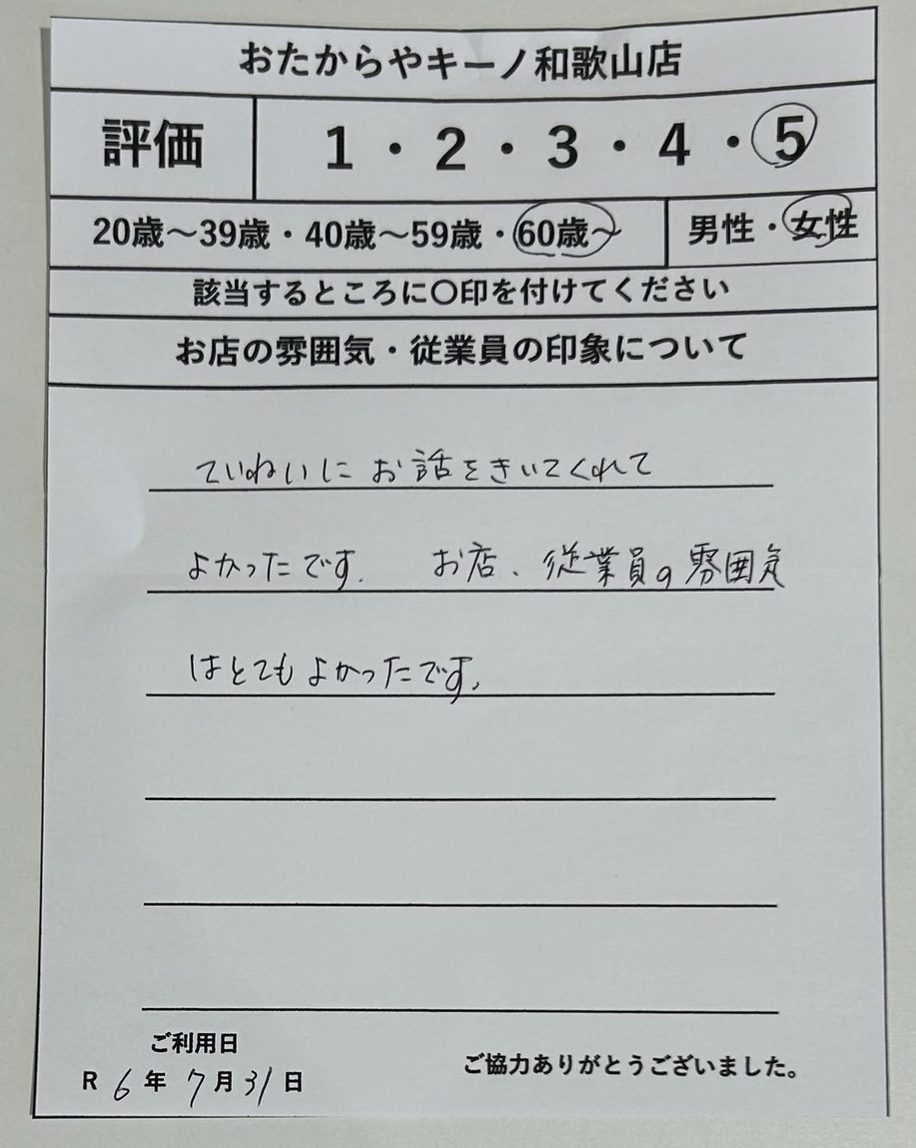 おたからやキーノ和歌山店
評価 1・2・3・4・5
20歳～39歳・40歳～59歳・60歳～ 男性・女性
該当するところに〇印を付けてください
お店の雰囲気・従業員の印象について
ていねいにお話をきいてくれて
よかったです. お店、従業員の雰囲気
はとてもよかったです。
ご利用日
R 6年 7月31日
ご協力ありがとうございました。